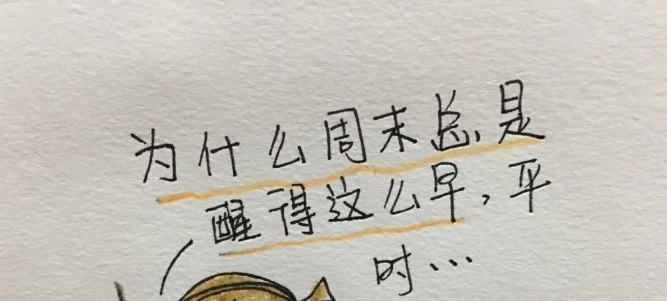 为什么周末总是
醒得这么早，平
时…